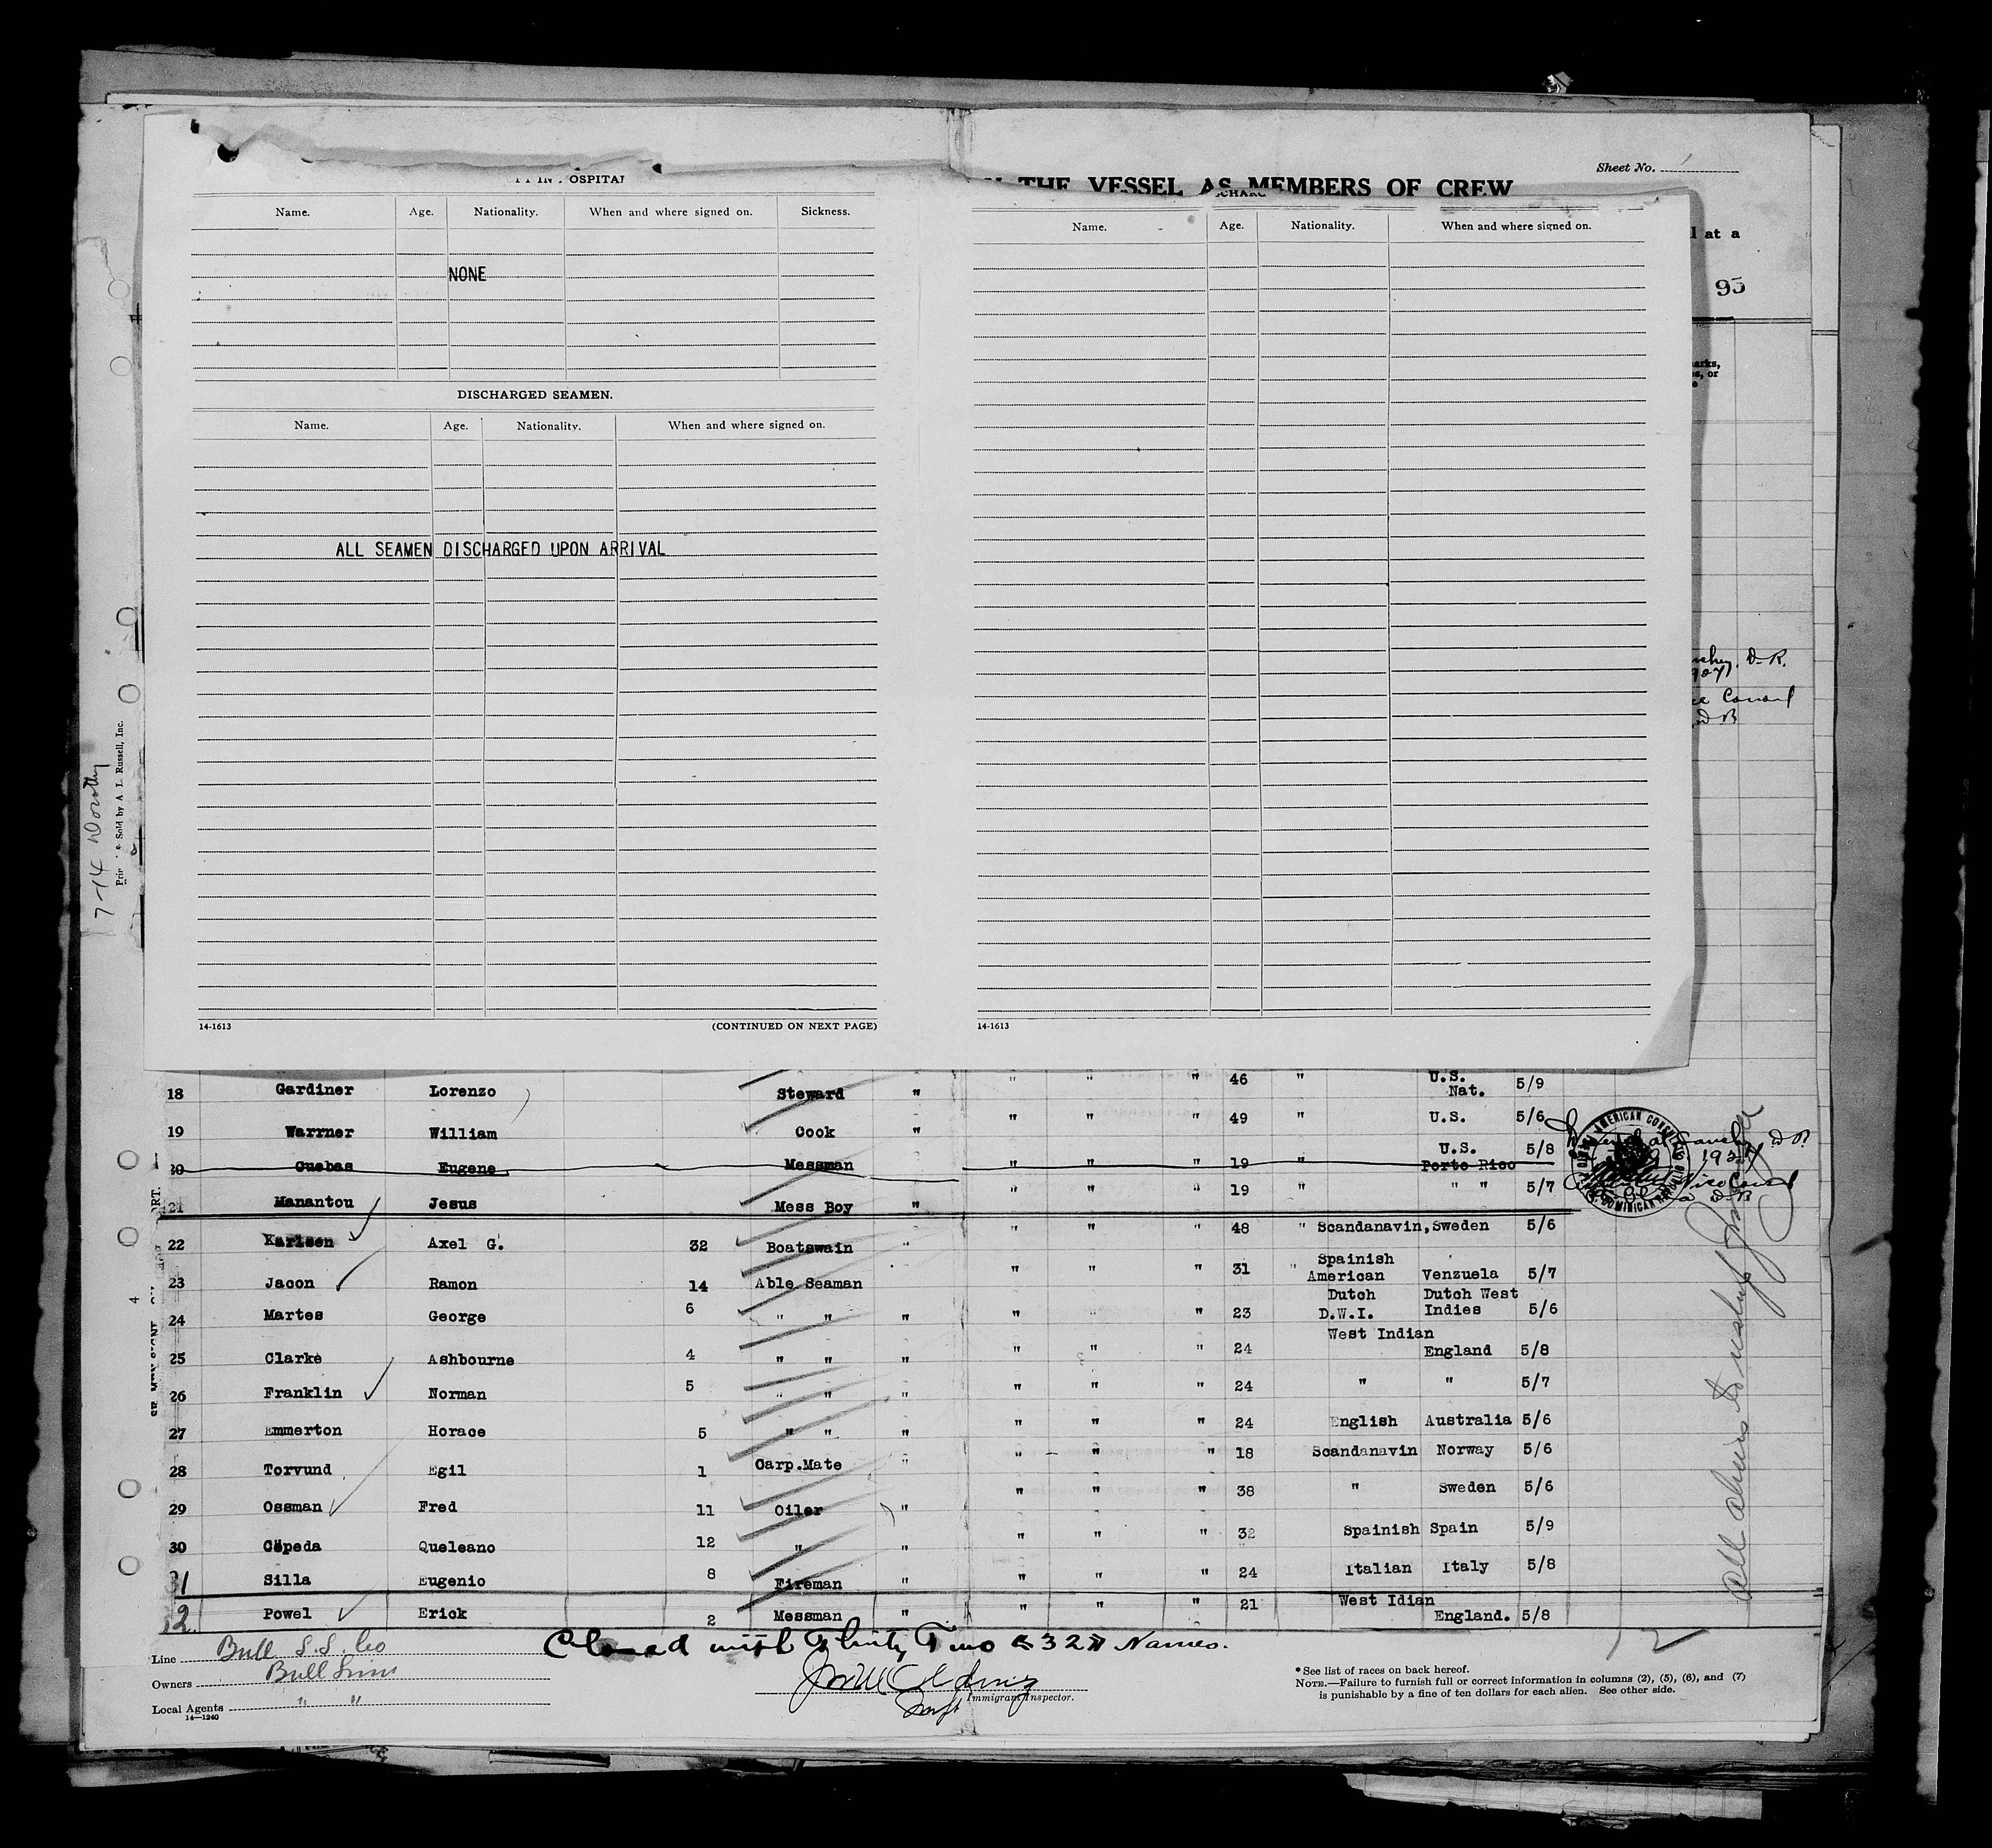 Sheet No.
THE VESSEL AS MEMBERS OF CREW
Name. Age. Nationality. When and where signed on. Sickness.
NONE
DISCHARGED SEAMEN.
Name. Age. Nationality. When and where signed on.
ALL SEAMEN DISCHARGED UPON ARRIVAL
14-1613 (CONTINUED ON NEXT PAGE)
Name. Age. Nationality. When and where signed on.
14-1613
at a
95
D.R.
D R
7-14 Dorothy
Sold by A. L. Russell, Inc.
18 Gardiner Lorenzo Steward " " " " 46 " U.S. Nat. 5/9
19 Warrner William Cook " " " " 49 " U.S. 5/6
20 Cuebas Eugene Messman " " " 19 " U.S. Porto Rico 5/8
21 Manantou Jesus Mess Boy " " " " 19 " " " 5/7
22 Karlsen Axel G. 32 Boatswain " " " " 48 " Scandanavin, Sweden 5/6
23 Jacon Ramon 14 Able Seaman " " " 31 " Spainish American Venzuela 5/7
24 Martes George 6 " " " " " " 23 Dutch D.W.I. Dutch West Indies 5/6
25 Clarke Ashbourne 4 " " " " " " 24 West Indian England 5/8
26 Franklin Norman 5 " " " " " " 24 " " 5/7
27 Emmerton Horace 5 " " " " " " 24 English Australia 5/6
28 Torvund Egil 1 Carp.Mate " " " " 18 Scandanavin Norway 5/6
29 Ossman Fred 11 Oiler " " " " 38 " Sweden 5/6
30 Cepeda Queleano 12 " " " " " 32 Spainish Spain 5/9
31 Silla Eugenio 8 Fireman " " " " 24 Italian Italy 5/8
32 Powel Erick 2 Messman " " " " 21 West Idian England. 5/8
AMERICAN CONSUL
DOMINICAN REPUBLIC
All aliens to
Closed with Thirty Two "32" Names.
Line Bull S.S. Co
Owners Bull Lines
Local Agents " "
14—1240
Immigrant Inspector.
* See list of races on back hereof.
NOTE.—Failure to furnish full or correct information in columns (2), (5), (6), and (7)
is punishable by a fine of ten dollars for each alien. See other side.